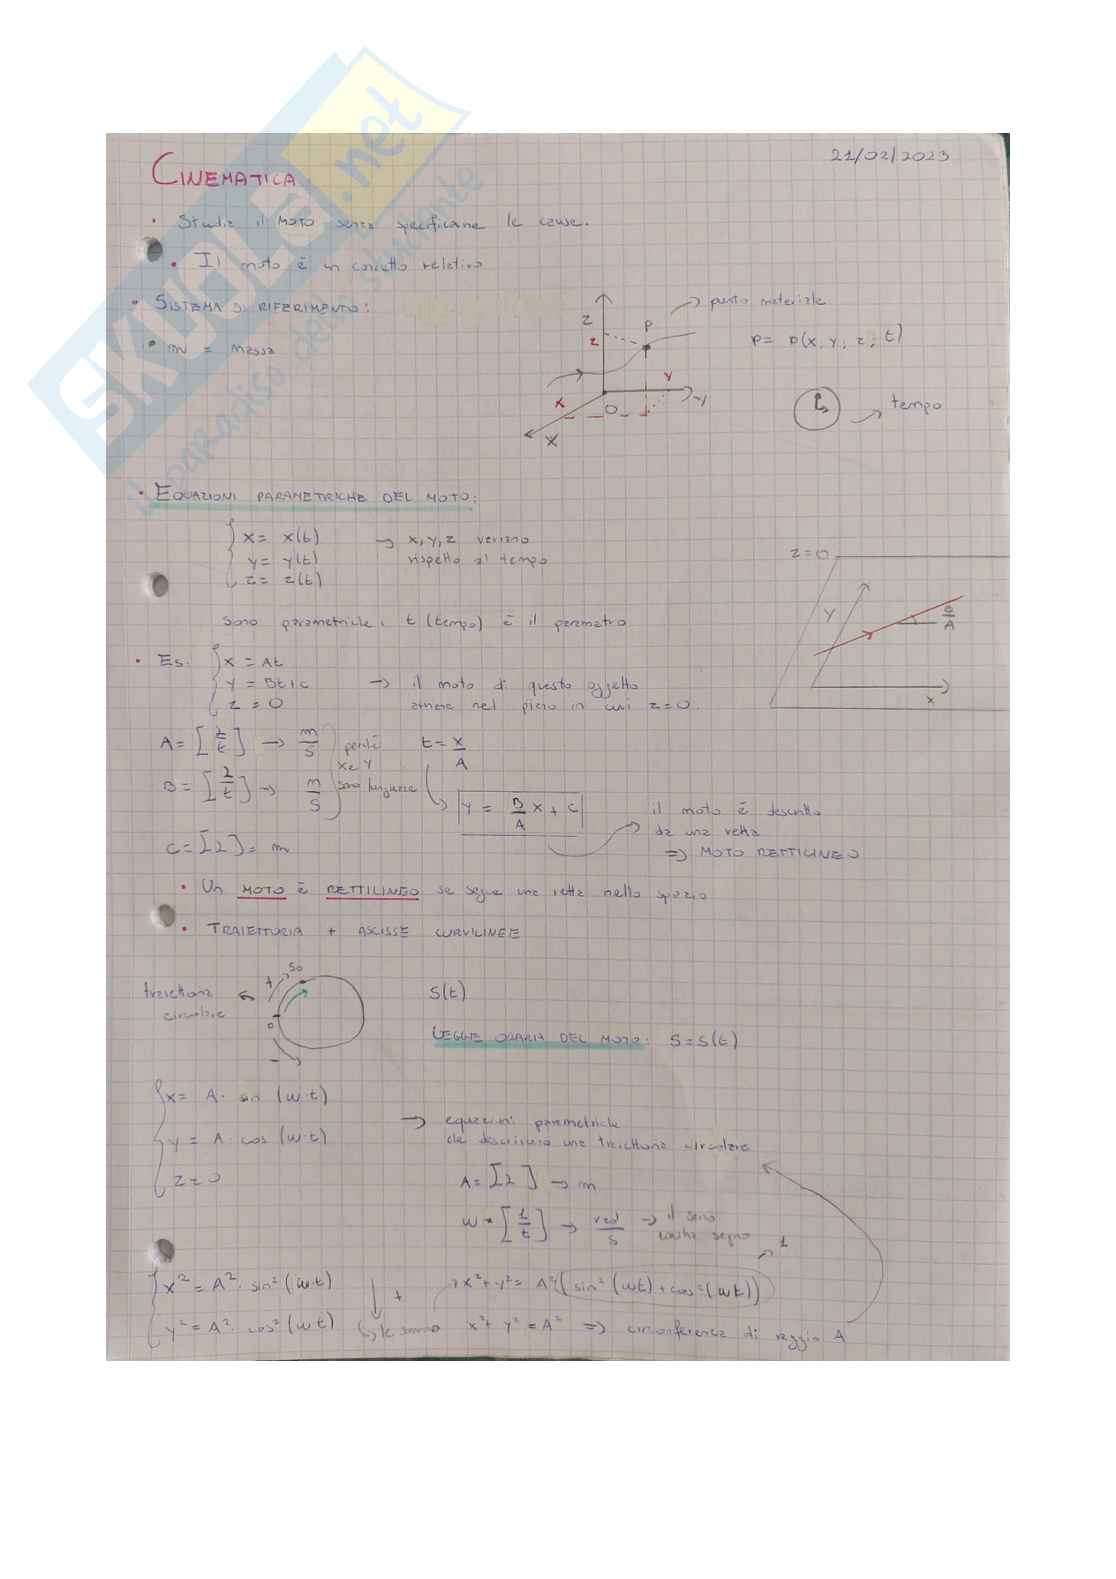 SKUOLA.net
il paradiso dello studente
21/02/2023
CINEMATICA
• Studia il MOTO senza specificare le cause.
• Il moto è un concetto relativo
• SISTEMA DI RIFERIMENTO:
• m = massa
z
z
P
→ punto materiale
P = P(x, y, z; t)
x
O
y
y
x
→ tempo
• EQUAZIONI PARAMETRICHE DEL MOTO:
x = x(t) → x, y, z variano
y = y(t) rispetto al tempo
z = z(t)
sono parametriche: t (tempo) è il parametro
z = 0
y
B/A
x
• Es: x = At
y = Bt + c → il moto di questo oggetto
z = 0 avviene nel piano in cui z = 0.
A = [λ/t] → m/s perché x e y sono lunghezze
B = [λ/t] → m/s
t = x/A
y = B/A x + c
il moto è descritto
da una retta
=> MOTO RETTILINEO
c = [λ] = m
• Un MOTO è RETTILINEO se segue una retta nello spazio
• TRAIETTORIA + ASCISSE CURVILINEE
traiettoria ← circolare
+
So
O
-
S(t)
LEGGE ORARIA DEL MOTO: S = S(t)
x = A · sin (ω·t)
y = A cos (ω·t)
z = 0
→ equazioni parametriche
che descrivono una traiettoria circolare
A = [λ] → m
ω = [1/t] → rad/s → il seno
cambia segno
1
x² = A² · sin² (ωt)
y² = A² · cos² (ωt)
+
↳ le sommo
x² + y² = A² (sin² (ωt) + cos² (ωt))
x² + y² = A² => circonferenza di raggio A